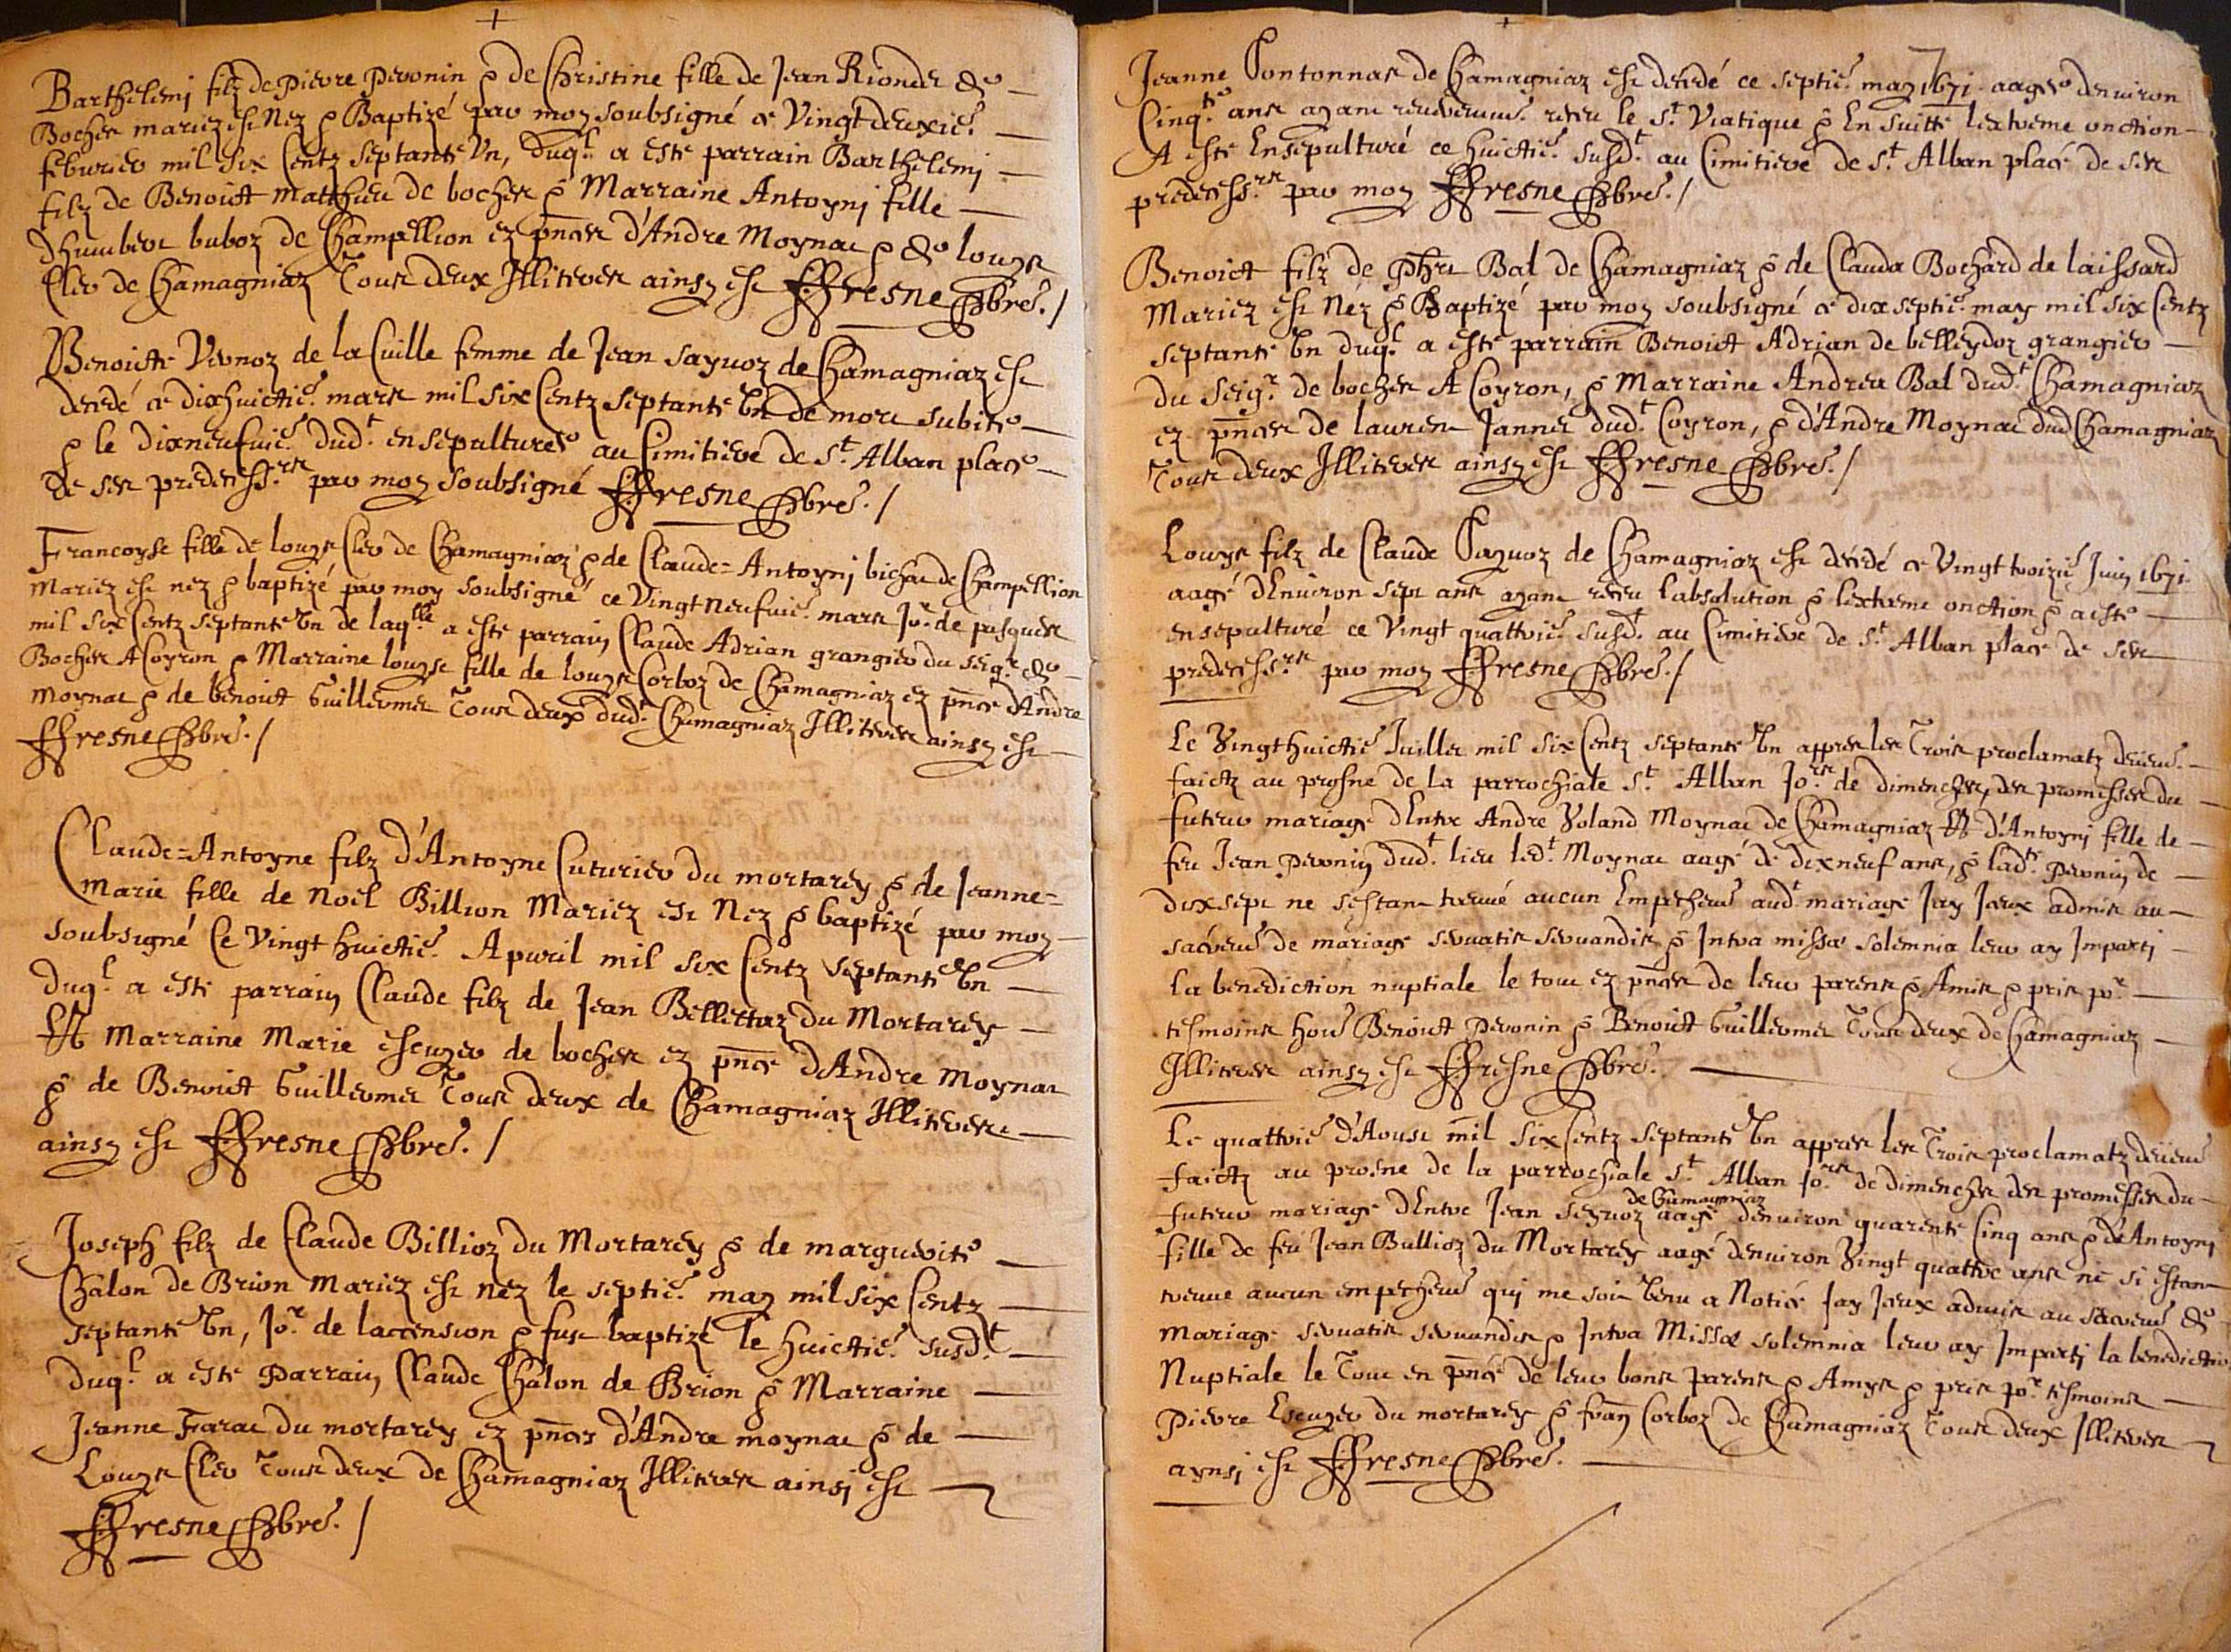 Barthelemj filz de Pierre Peronin & de Christine fille de Jean Riondet de
Bochez mariez est Nez & Baptizé par moy soubsigné ce Vingtdeuxie.
feburier mil six Centz septante Vn, duql. a esté parrain Barthelemj
filz de Benoict Matthieu de bochez & Marraine Antoynj fille
dhumbert buboz de Champellion ez pnces d'Andre Moynat & de louys
Cler de Chamagniaz Tous deux Illiteres ainsy est ffresne Pbre. /
Benoicte Vernoz de la Cuille femme de Jean sayuoz de Chamagniaz est
decedé ce dixhuictie. mars mil six Centz septante Vn de mort subite
& le dixneufuie. dud.t ensepulturée au Cimitiere de s.t Alban place
de ses predecess.rs par moy soubsigné ffresne Pbre. /
Francoyse fille de louys Cler de Chamagniaz & de Claude=Antoynj bichat de Champellion
Mariez est nez & baptizé par moy soubsigné ce Vingtneufuie. mars Jo.r de pasques
mil six Centz septante Vn de laq.lle a esté parrain Claude Adrian grangier du seig.r de
Bochez A Coyron & Marraine louyse fille de louys Corboz de Chamagniaz ez pnce d'Andre
moynat & de benoict Guillermet Tous deux dud.t Chamagniaz Illiteres ainsy est
ffresne Pbre. /
Claude=Antoyne filz d'Antoyne Cuturier du mortarey & de Jeanne=
Marie fille de Noel Billion Mariez est Nez & baptizé par moy
soubsigné Ce Vingt huictie. Apuril mil six Centz septante Vn
duq.l a esté parrain Claude filz de Jean Bellettaz du Mortarey
Et Marraine Marie escuyer de bochez ez pnce d'Andre Moynat
& de Benoict Guillermet Tous deux de Chamagniaz Illiteres
ainsy est ffresne Pbre. /
Joseph filz de Claude Billioz du Mortarey & de marguerite
Chalon de Brion Mariez est nez le septie. may mil six Centz
septante Vn, Jo.r de laccension & fust baptizé le huictie. susd.t
duq.l a esté Parrain Claude Chalon de Brion & Marraine
Jeanne Farat du mortarey ez pnces d'Andre moynat & de
Louys Cler Tous deux de Chamagniaz Illiteres ainsj est
ffresne Pbre. /
Jeanne Pontonnas de Chamagniaz est decedé ce septie. may 1671. aagée denuiron
Cinq.te ans ayant receu le s.t Viatique & En suitte lextreme onction
A esté Ensepulturé ce huictie. susd.t au Cimitiere de s.t Alban place de ses
predecess.rs par moy ffresne Pbre. /
Benoict filz de Phre Bal de Chamagniaz & de Clauda Bochard de laissard
Mariez est Nez & Baptizé par moy soubsigné ce dixseptie. may mil six Centz
septante Vn duq.l a esté parrain Benoict Adrian de belleydoz grangier
du Seig.r de bochez A Coyron, & Marraine Andrea Bal dud.t Chamagniaz
ez pnces de laurent Jannet dud.t Coyron, & d'Andre Moynat dud Chamagniaz
Tous deux Illiteres ainsy est ffresne Pbre. /
Louys filz de Claude Payuoz de Chamagniaz est decedé ce Vingt troizie Juin 1671.
aagé dEnuiron sept ans ayant receu labsolution & lextreme onction & a esté
ensepulturé ce Vingt quattrie. susd.t au Cimitiere de s.t Alban place de ses
predecess.rs par moy ffresne Pbre. /
Le Vingthuictie Juillet mil six Centz septante Vn appres les Trois proclamatz
faictz au prosne de la parrochiale s.t Alban Jo.rs de dimenches, des promesses du
futeur mariage dEntre Andre Voland Moynat de Chamagniaz Et d'Antoynj fille de
feu Jean Peronin dud.t lieu led.t Moynat aagé de dixneuf ans, & lad.te Peronin de
dixsept ne sestant treuué aucun Empechem aud.t mariage Jay Jceux admis au
sacrem de mariage seruatis seruandis & Intra missae solemnia leur ay Impartj
la benediction nuptiale le tout ez pnces de leur parens & Amis & pris po.r
tesmoins Benoict Peronin & Benoict Guillermet Tous deux de Chamagniaz
Illiteres ainsy est ffresne Pbre.
Le quattrie d'Aoust mil six Centz septante Vn appres les Trois proclamatz
faictz au prosne de la parrochiale s.t Alban Jo.rs de dimenches des promesses du
de Chamagniaz
futeur mariage dEntre Jean seyuoz aagé denuiron quarente Cinq ans & d'Antoynj
fille de feu Jean Bullioz du Mortarey aagé denuiron Vingt quattre ans ne si estant
treuué aucun empechem qui me soit Venu a Notice Jay Jceux admis au sacrem de
Mariage seruatis seruandis & Intra Missae solemnia leur ay Impartj la benediction
Nuptiale le Tout en pnce de leur bons parens & Amys & pris po.r tesmoins
Pierre Escuyer du mortarey & fran Corboz de Chamagniaz Tous deux Illiteres
aynsj est ffresne Pbre.